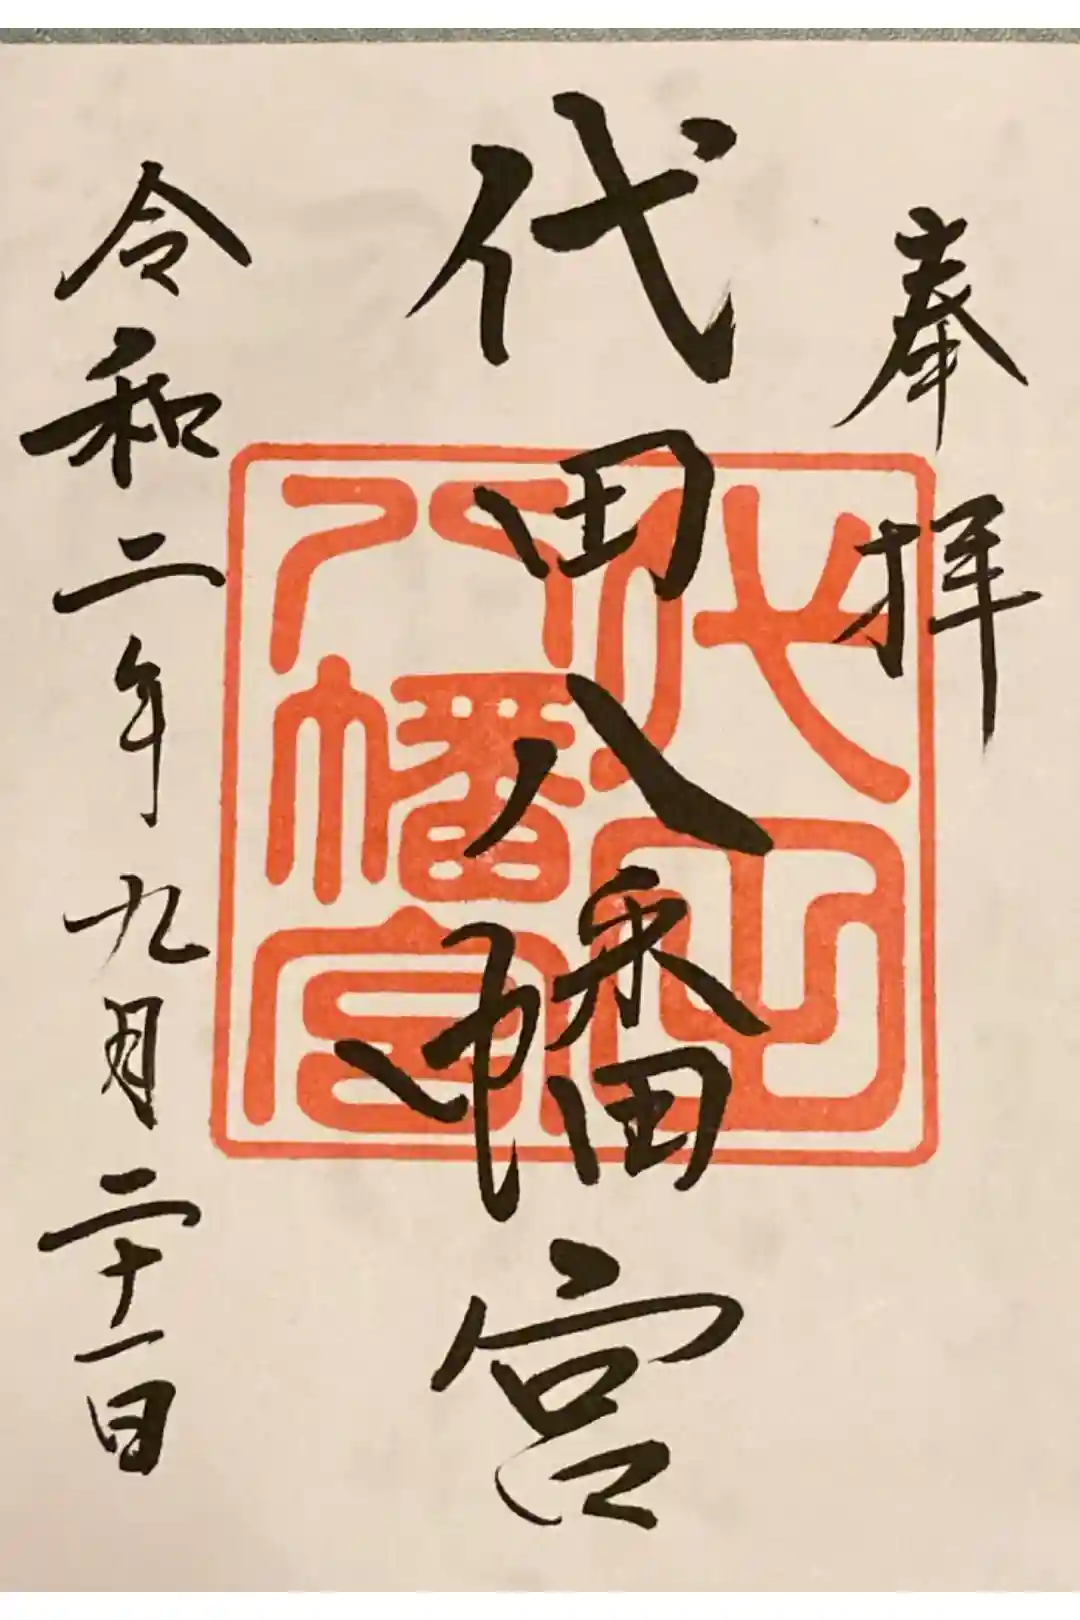 奉拝
代田八幡宮
代田
八幡宮
令和二年九月二十一日